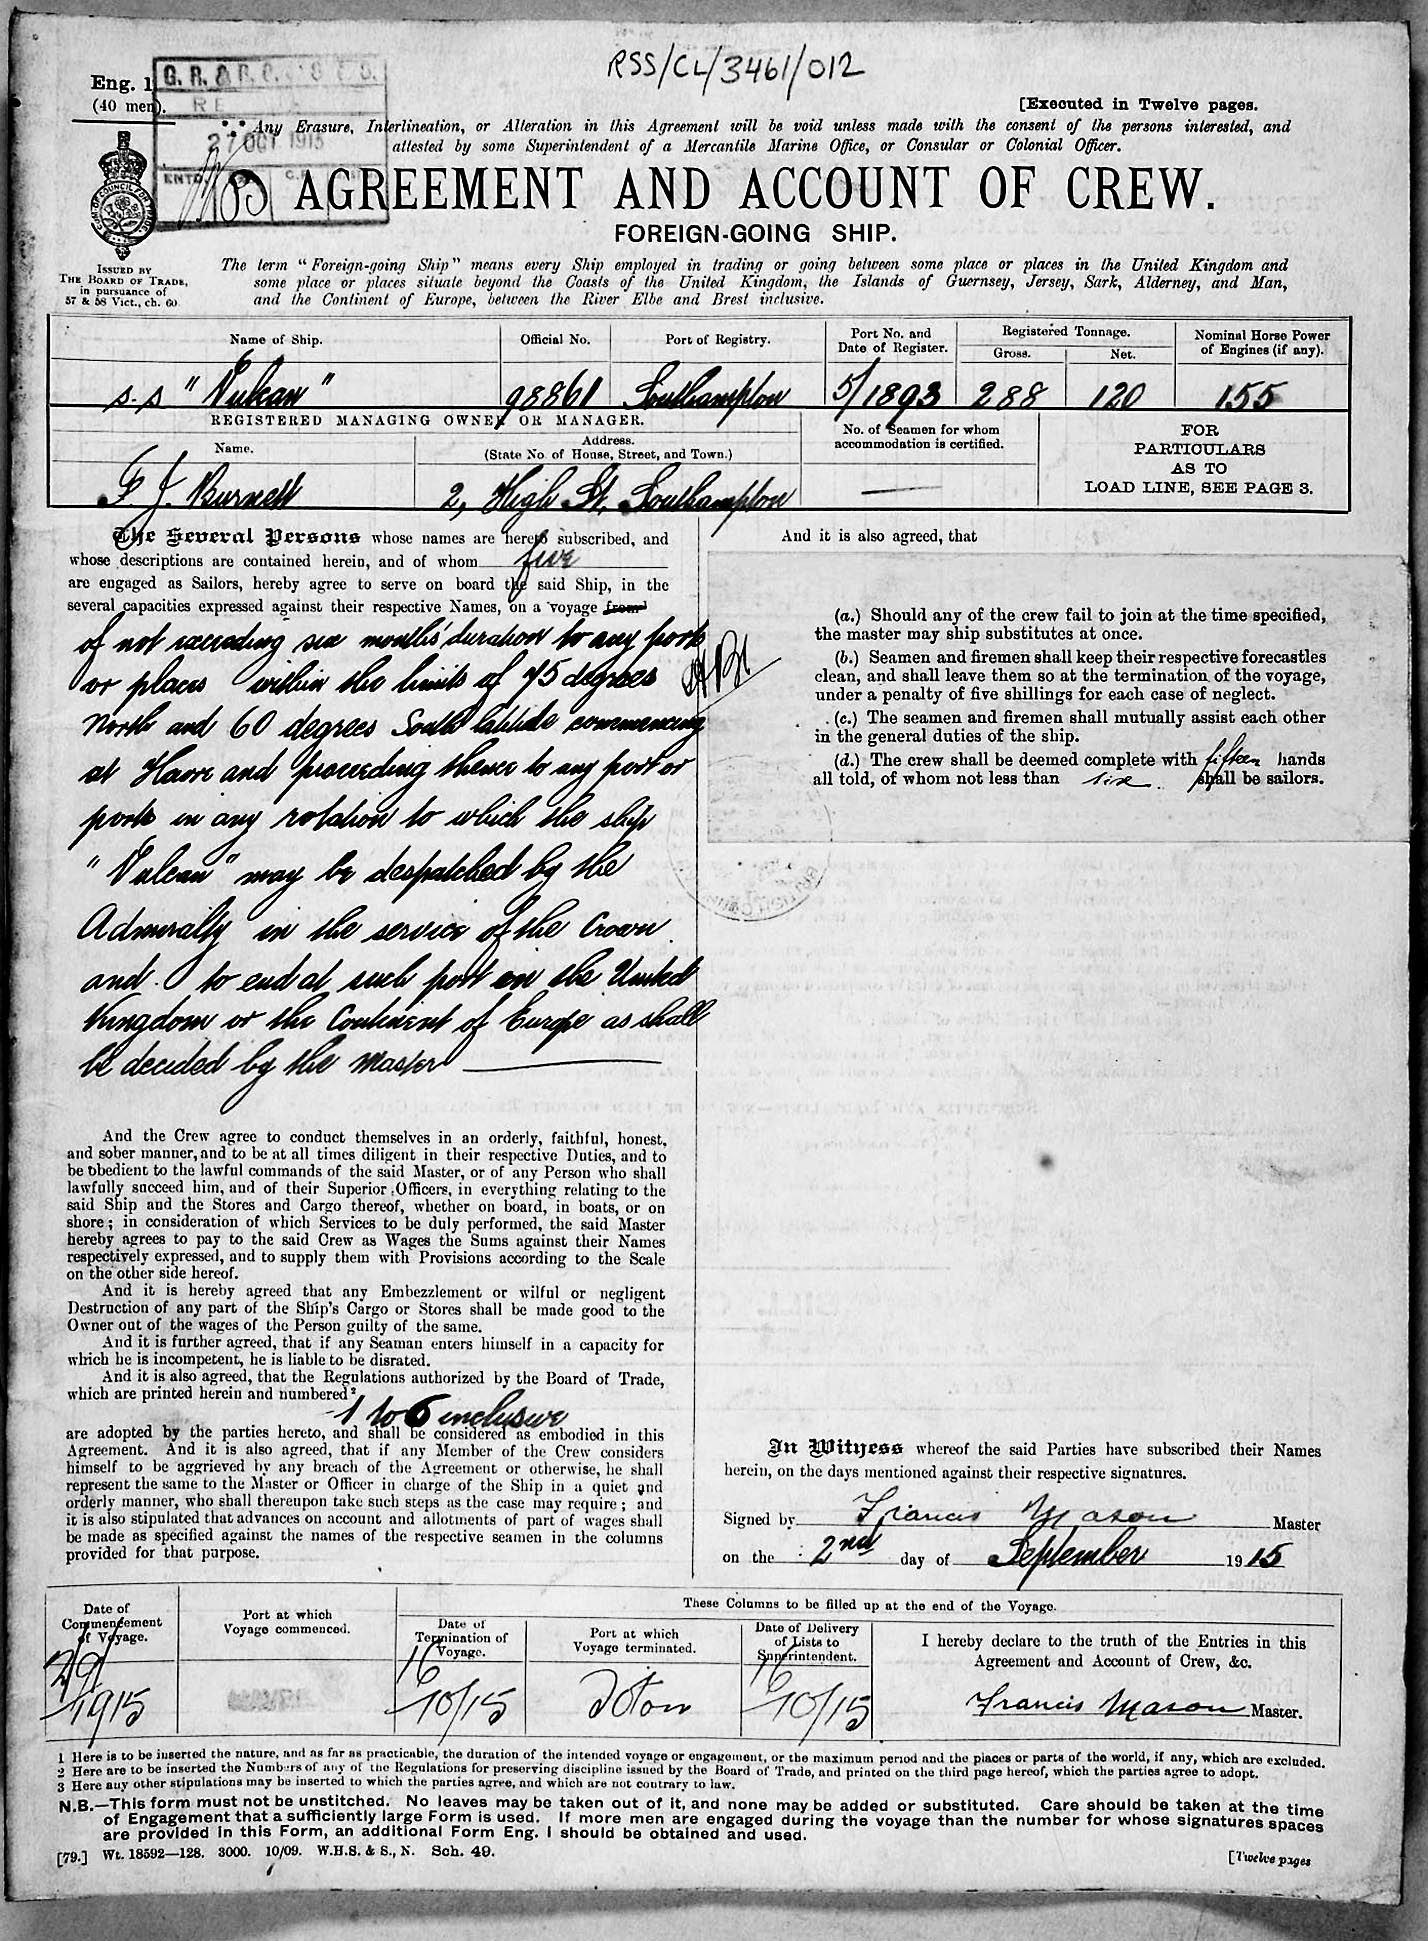 RSS/CL/3461/012
Eng. 1
(40 men).
G. R. &
RE
27 OCT 1915
[Executed in Twelve pages.
Any Erasure, Interlineation, or Alteration in this Agreement will be void unless made with the consent of the persons interested, and
attested by some Superintendent of a Mercantile Marine Office, or Consular or Colonial Officer.
AGREEMENT AND ACCOUNT OF CREW.
FOREIGN-GOING SHIP.
ISSUED BY
THE BOARD OF TRADE,
in pursuance of
57 & 58 Vict., ch. 60
The term "Foreign-going Ship" means every Ship employed in trading or going between some place or places in the United Kingdom and
some place or places situate beyond the Coasts of the United Kingdom, the Islands of Guernsey, Jersey, Sark, Alderney, and Man,
and the Continent of Europe, between the River Elbe and Brest inclusive.
Name of Ship. Official No. Port of Registry. Port No. and Date of Register. Registered Tonnage. Gross. Net. Nominal Horse Power of Engines (if any).
s.s "Vulcan" 98861 Southampton 5/1893 288 120 155
REGISTERED MANAGING OWNER OR MANAGER.
Name. Address. (State No. of House, Street, and Town.) No. of Seamen for whom accommodation is certified.
F. J. Burnett 2, High St, Southampton
FOR
PARTICULARS
AS TO
LOAD LINE, SEE PAGE 3.
The Several Persons whose names are hereto subscribed, and
whose descriptions are contained herein, and of whom five
are engaged as Sailors, hereby agree to serve on board the said Ship, in the
several capacities expressed against their respective Names, on a voyage from1
of not exceeding six months' duration to any ports
or places within the limits of 75 degrees
North and 60 degrees South latitude commencing
at Havre and proceeding thence to any port or
ports in any rotation to which the ship
"Vulcan" may be despatched by the
Admiralty in the service of the Crown
and to end at such port in the United
Kingdom or the Continent of Europe as shall
be decided by the Master
And the Crew agree to conduct themselves in an orderly, faithful, honest,
and sober manner, and to be at all times diligent in their respective Duties, and to
be obedient to the lawful commands of the said Master, or of any Person who shall
lawfully succeed him, and of their Superior Officers, in everything relating to the
said Ship and the Stores and Cargo thereof, whether on board, in boats, or on
shore; in consideration of which Services to be duly performed, the said Master
hereby agrees to pay to the said Crew as Wages the Sums against their Names
respectively expressed, and to supply them with Provisions according to the Scale
on the other side hereof.
And it is hereby agreed that any Embezzlement or wilful or negligent
Destruction of any part of the Ship's Cargo or Stores shall be made good to the
Owner out of the wages of the Person guilty of the same.
And it is further agreed, that if any Seaman enters himself in a capacity for
which he is incompetent, he is liable to be disrated.
And it is also agreed, that the Regulations authorized by the Board of Trade,
which are printed herein and numbered2
1 to 6 inclusive
are adopted by the parties hereto, and shall be considered as embodied in this
Agreement. And it is also agreed, that if any Member of the Crew considers
himself to be aggrieved by any breach of the Agreement or otherwise, he shall
represent the same to the Master or Officer in charge of the Ship in a quiet and
orderly manner, who shall thereupon take such steps as the case may require; and
it is also stipulated that advances on account and allotments of part of wages shall
be made as specified against the names of the respective seamen in the columns
provided for that purpose.
And it is also agreed, that
(a.) Should any of the crew fail to join at the time specified,
the master may ship substitutes at once.
(b.) Seamen and firemen shall keep their respective forecastles
clean, and shall leave them so at the termination of the voyage,
under a penalty of five shillings for each case of neglect.
(c.) The seamen and firemen shall mutually assist each other
in the general duties of the ship.
(d.) The crew shall be deemed complete with fifteen hands
all told, of whom not less than six shall be sailors.
In Witness whereof the said Parties have subscribed their Names
herein, on the days mentioned against their respective signatures.
Signed by Francis Mason Master
on the 2nd day of September 1915
These Columns to be filled up at the end of the Voyage.
Date of Commencement of Voyage. Port at which Voyage commenced. Date of Termination of Voyage. Port at which Voyage terminated. Date of Delivery of Lists to Superintendent. I hereby declare to the truth of the Entries in this Agreement and Account of Crew, &c.
2/9/1915 16/10/15 Soton 16/10/15 Francis Mason Master.
1 Here is to be inserted the nature, and as far as practicable, the duration of the intended voyage or engagement, or the maximum period and the places or parts of the world, if any, which are excluded.
2 Here are to be inserted the Numbers of any of the Regulations for preserving discipline issued by the Board of Trade, and printed on the third page hereof, which the parties agree to adopt.
3 Here any other stipulations may be inserted to which the parties agree, and which are not contrary to law.
N.B.—This form must not be unstitched. No leaves may be taken out of it, and none may be added or substituted. Care should be taken at the time
of Engagement that a sufficiently large Form is used. If more men are engaged during the voyage than the number for whose signatures spaces
are provided in this Form, an additional Form Eng. 1 should be obtained and used.
[79.] Wt. 18592—128. 3000. 10/09. W.H.S. & S., N. Sch. 49.
[Twelve pages